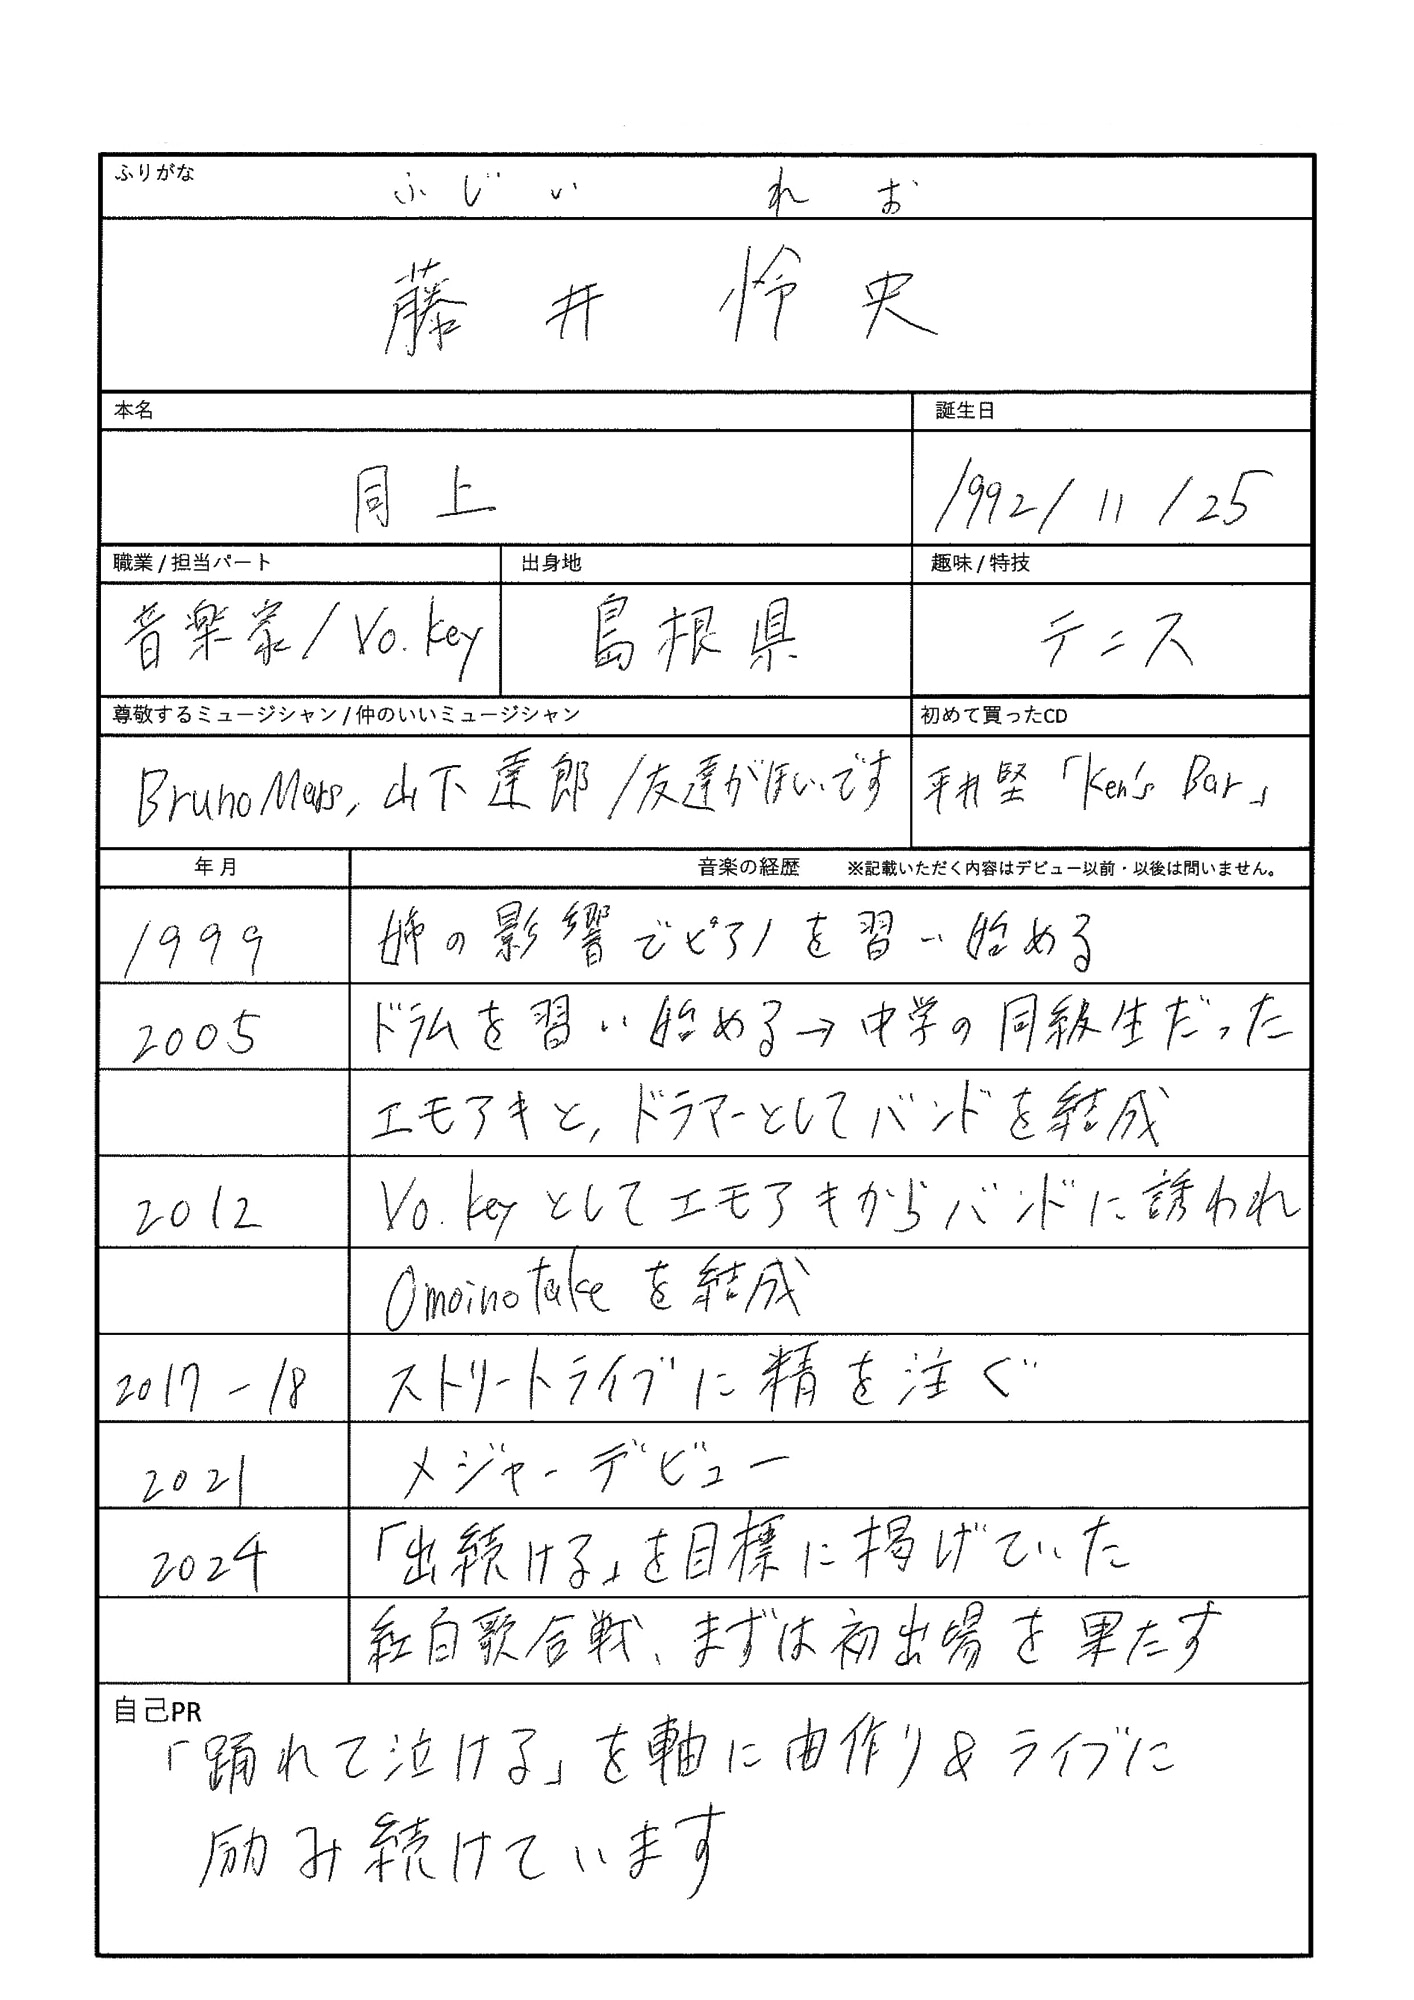 ふりがな
ふじい れお
藤井 怜央
本名 誕生日
同上 1992/11/25
職業/担当パート 出身地 趣味/特技
音楽家/Vo.key 島根県 テニス
尊敬するミュージシャン/仲のいいミュージシャン 初めて買ったCD
Bruno Mars, 山下達郎/友達がほしいです 平井堅「Ken's Bar」
年月 音楽の経歴 ※記載いただく内容はデビュー以前・以後は問いません。
1999 姉の影響でピアノを習い始める
2005 ドラムを習い始める→中学の同級生だった
エモアキと,ドラマーとしてバンドを結成
2012 Vo.keyとしてエモアキからバンドに誘われ
Omoinotakeを結成
2017-18 ストリートライブに精を注ぐ
2021 メジャーデビュー
2024 「出続ける」を目標に掲げていた
紅白歌合戦、まずは初出場を果たす
自己PR
「踊れて泣ける」を軸に曲作り&ライブに
励み続けています